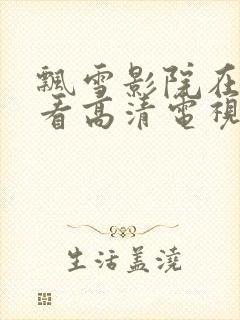 飄雪影院在
看高清電視
生活蓋澆